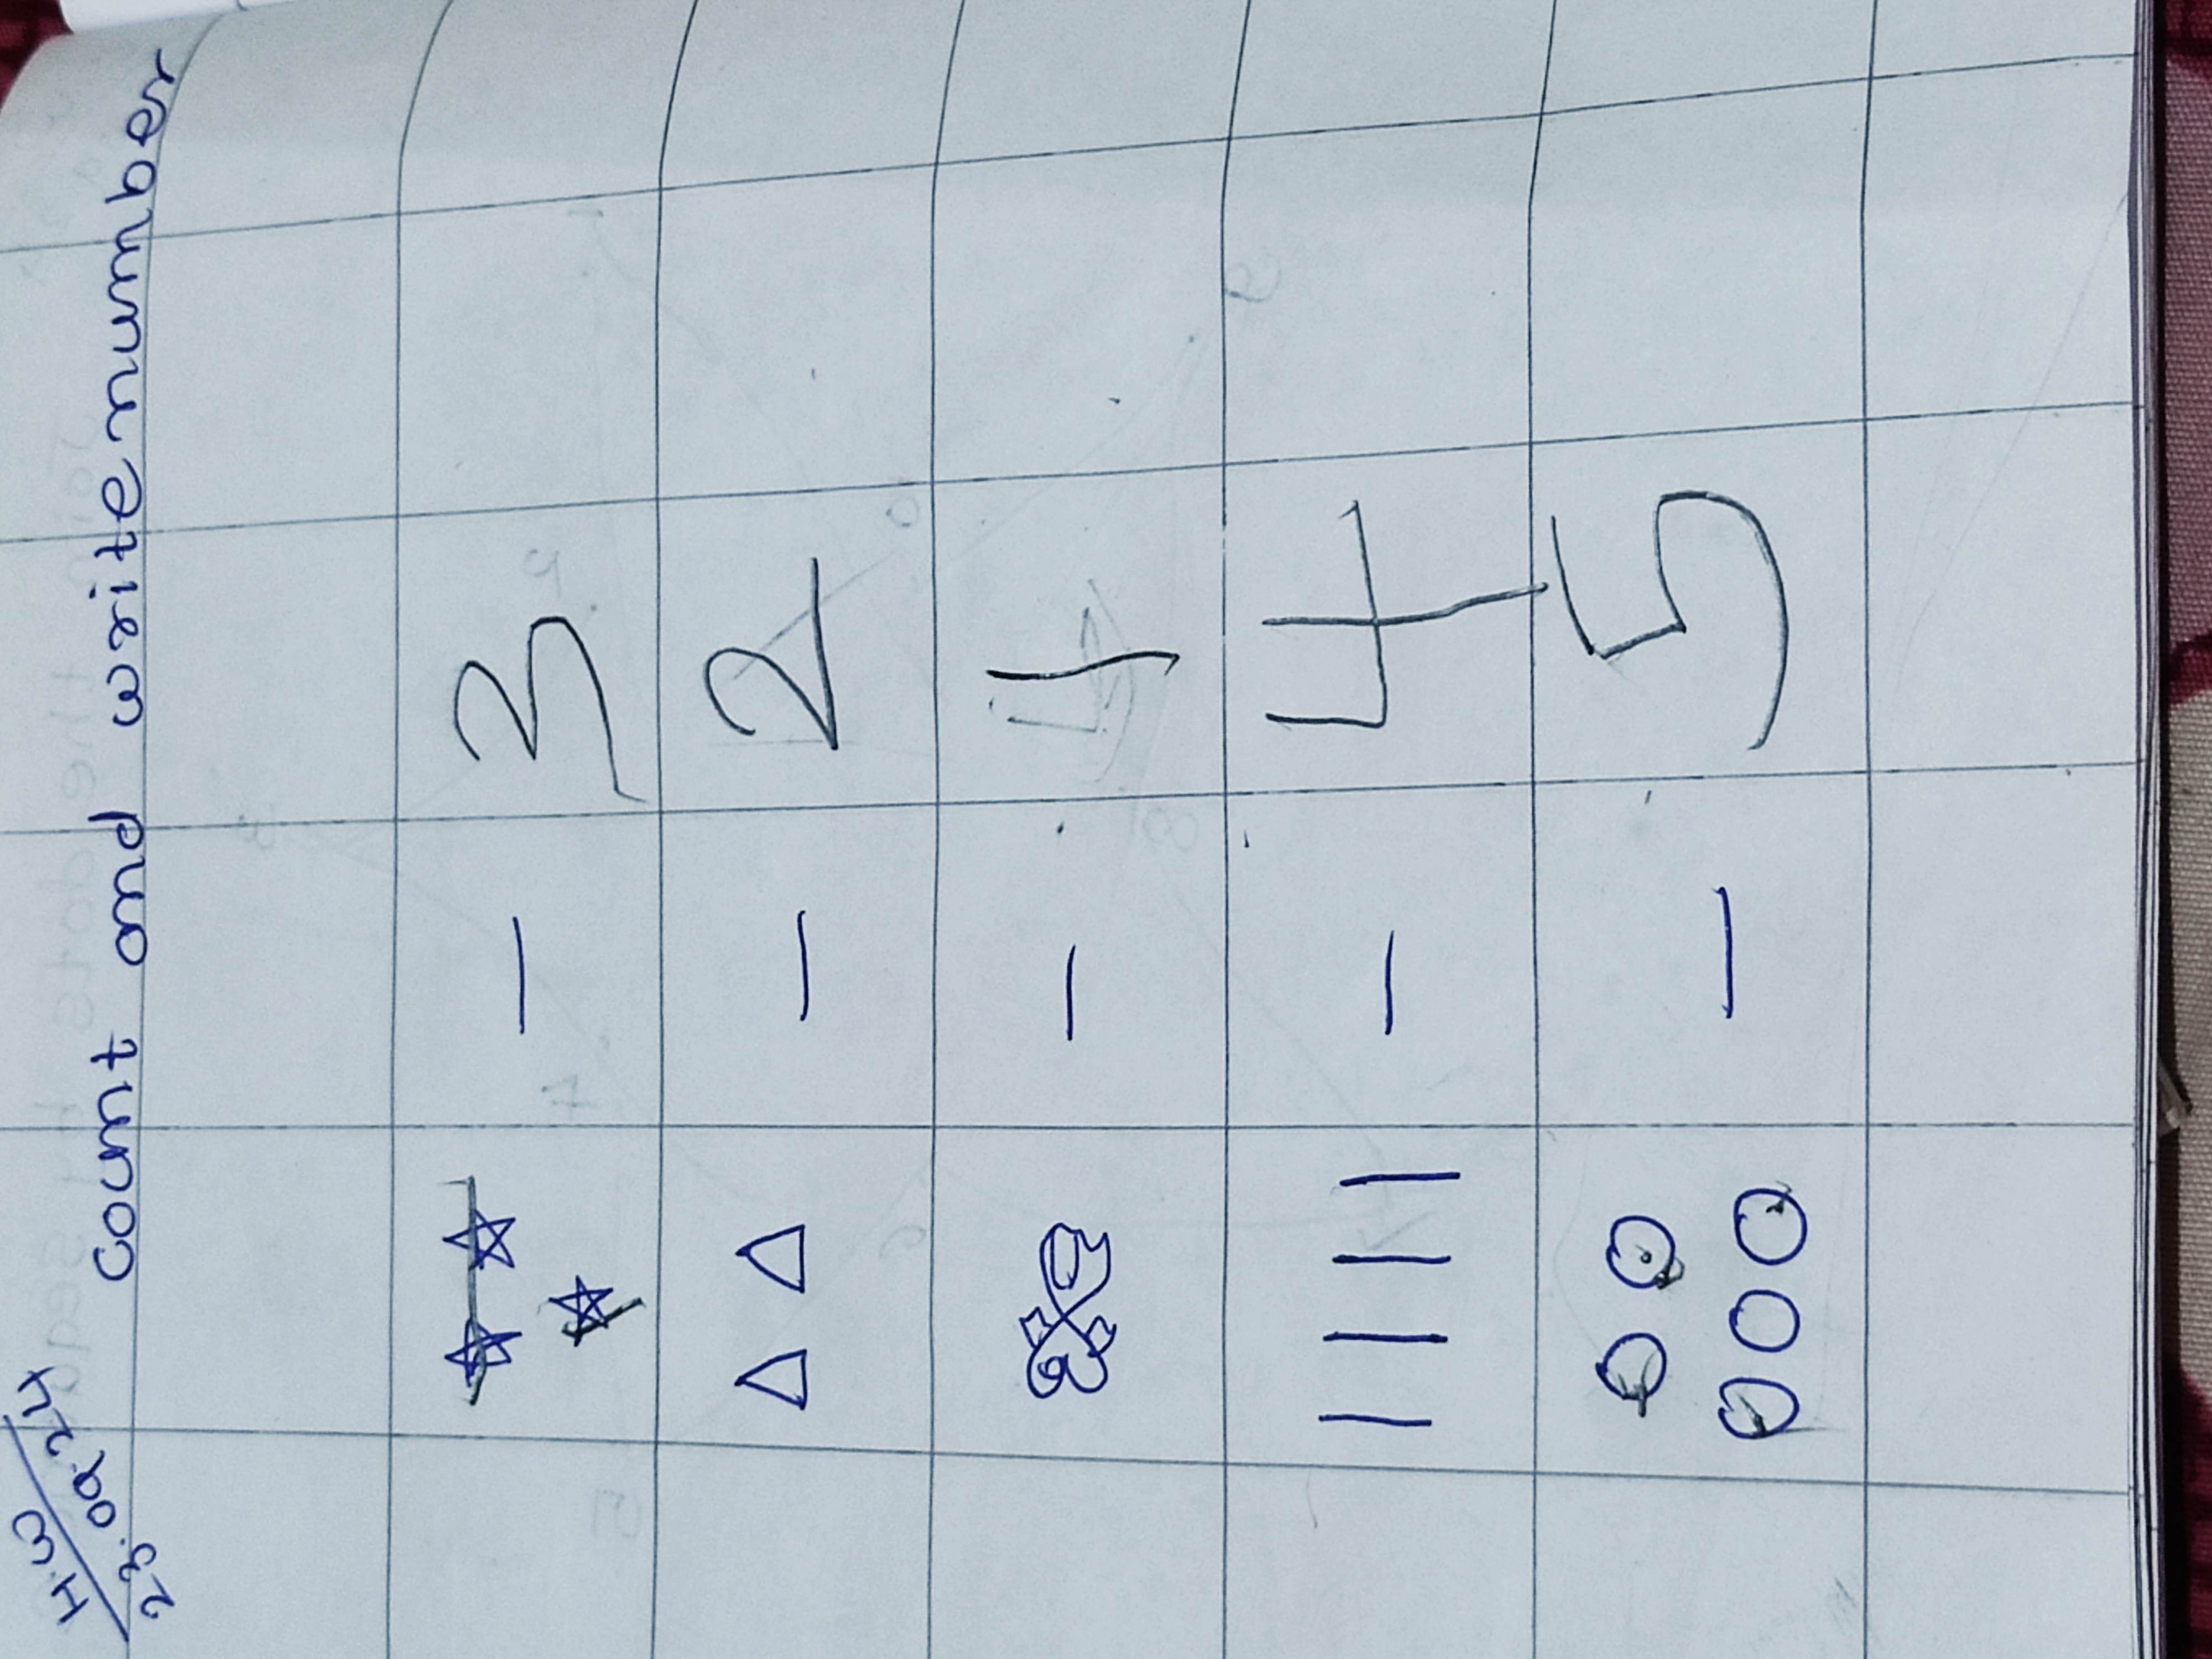 H.W
23.09.24
Count and write number
— 3
— 2
— 1
— 4
— 5